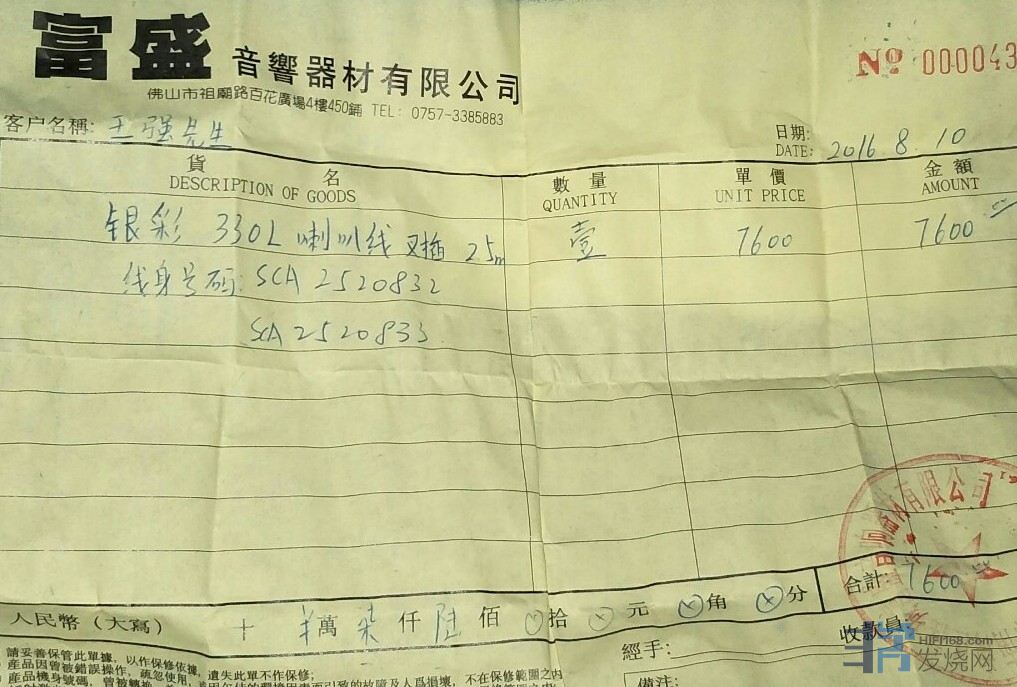 富盛 音響器材有限公司
№ 000043
佛山市祖廟路百花廣場4樓450鋪 TEL: 0757-3385883
客户名稱: 王强先生
日期:
DATE: 2016.8.10
貨 名 數量 單價 金額
DESCRIPTION OF GOODS QUANTITY UNIT PRICE AMOUNT
银彩 330L 喇叭线 叉插 2.5m 壹 7600 7600
线身号码: SCA 2520832
SCA 2520833
有限公司
人民幣（大寫） 十 萬 柒 仟 陆 佰 拾 元 角 分 合計: 7600
經手: 收款員
請妥善保管此單據，以作保修依據，遺失此單不作保修；
產品因曾被錯誤操作，疏忽使用，
不在保修範圍之内
產品機身號碼，曾被轉換，
備注:
HIFI168.com
发烧网